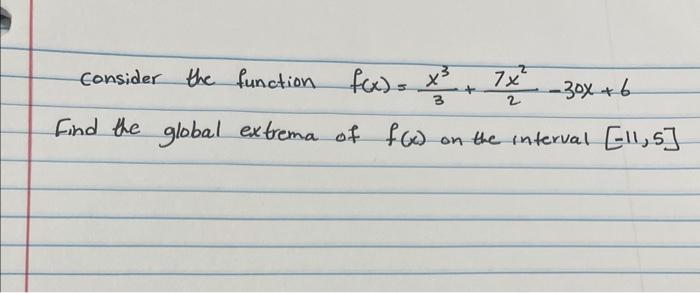 Consider the function f(x) = x³/3 + 7x²/2 - 30x + 6
Find the global extrema of f(x) on the interval [-11, 5]